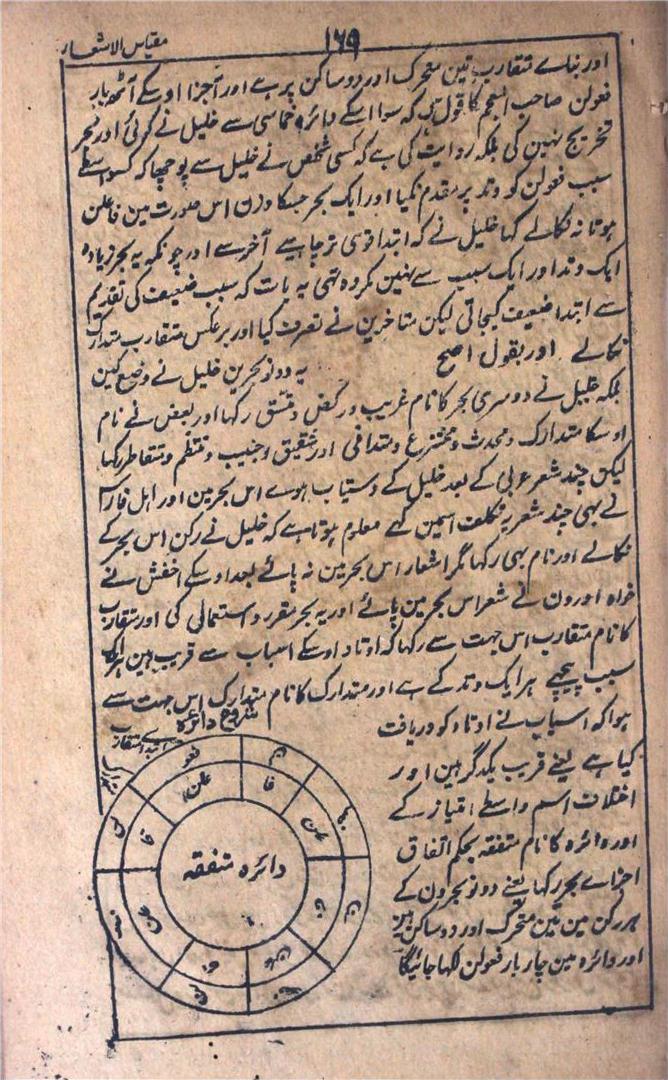 مقیاس الاشعار
۱۶۹
اور بناے متقارب تین متحرک اور دو ساکن پر ہے اور اجزا اوسکے آٹھ بار
فعولن صاحب المعجم کا قول ہے کہ سوا اسکے دائرہ خماسی سے خلیل نے کوئی اور بحر
تخریج نہین کی بلکہ روایت کی ہے کہ کسی شخص نے خلیل سے پوچھا کہ کسواسطے
سبب فعولن کو وتد پر مقدم نکیا اور ایک بحر جسکا وزن اس صورت مین فاعلن
ہوتا نہ نکالے کہا خلیل نے کہ ابتدا قوی تر چاہیے آخر سے اور چونکہ یہ بحر زیادہ
ایک وتد اور ایک سبب سے نہین مکروہ تھی یہ بات کہ سبب ضعیف کی تقدیم
سے ابتدا ضعیف کیجاتی لیکن متاخرین نے تصرف کیا اور بر عکس متقارب متدارک
نکالے اور بقول اصح یہ دونو بحرین خلیل نے وضع کین
بلکہ خلیل نے دوسری بحر کا نام غریب و رکض و متسق رکہا اور بعض نے نام
اوسکا متدارک و محدث و مخترع و متدافی اور شقیق و خبیب و منتظم و متقاطر رکہا
لیکن چند شعر عربی کے بعد خلیل کے دستیاب ہوے اس بحر مین اور اہل فارس
نے بھی چند شعر بہ تکلف اسمین کہے معلوم ہوتا ہے کہ خلیل نے رکن اس بحر کے
نکالے اور نام بھی رکہا مگر اشعار اس بحر مین نہ پائے بعد اوسکے اخفش نے
خواہ اورون نے شعر اس بحر مین پائے اور یہ بحر مقرر و استعمالی کی اور متقارب
کا نام متقارب اس جہت سے رکہا کہ اوتاد اوسکے اسباب سے قریب ہین ہر ایک
سبب پیچھے ہر ایک وتد کے ہے اور متدارک کا نام متدارک اس جہت سے
ہوا کہ اسباب نے اوتاد کو دریافت
کیا ہے یعنے قریب یکدگر ہین اور
اختلاف اسم واسطے امتیاز کے
اور دائرہ کا نام متفقہ بحکم اتفاق
اجزاے بحر رکہا یعنے دونو بحرون کے
ہر رکن مین تین متحرک اور دو ساکن ہین
اور دائرہ مین چار بار فعولن لکہا جائیگا
شروع دائرہ
دائرہ متفقہ
فعو
لن
فا
علن